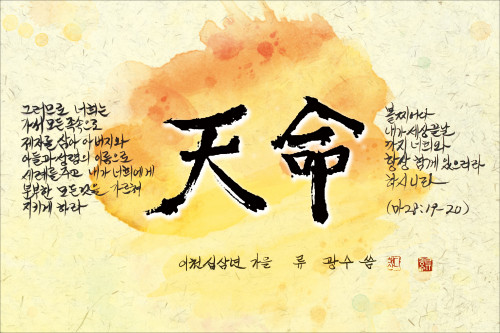 그러므로 너희는
가서 모든 족속으로
제자를 삼아 아버지와
아들과 성령의 이름으로
세례를 주고 내가 너희에게
분부한 모든 것을 가르쳐
지키게 하라
天命
볼지어다
내가 세상 끝날
까지 너희와
항상 함께 있으리라
하시니라
(마28:19-20)
이천십삼년 가을 류 광수 씀